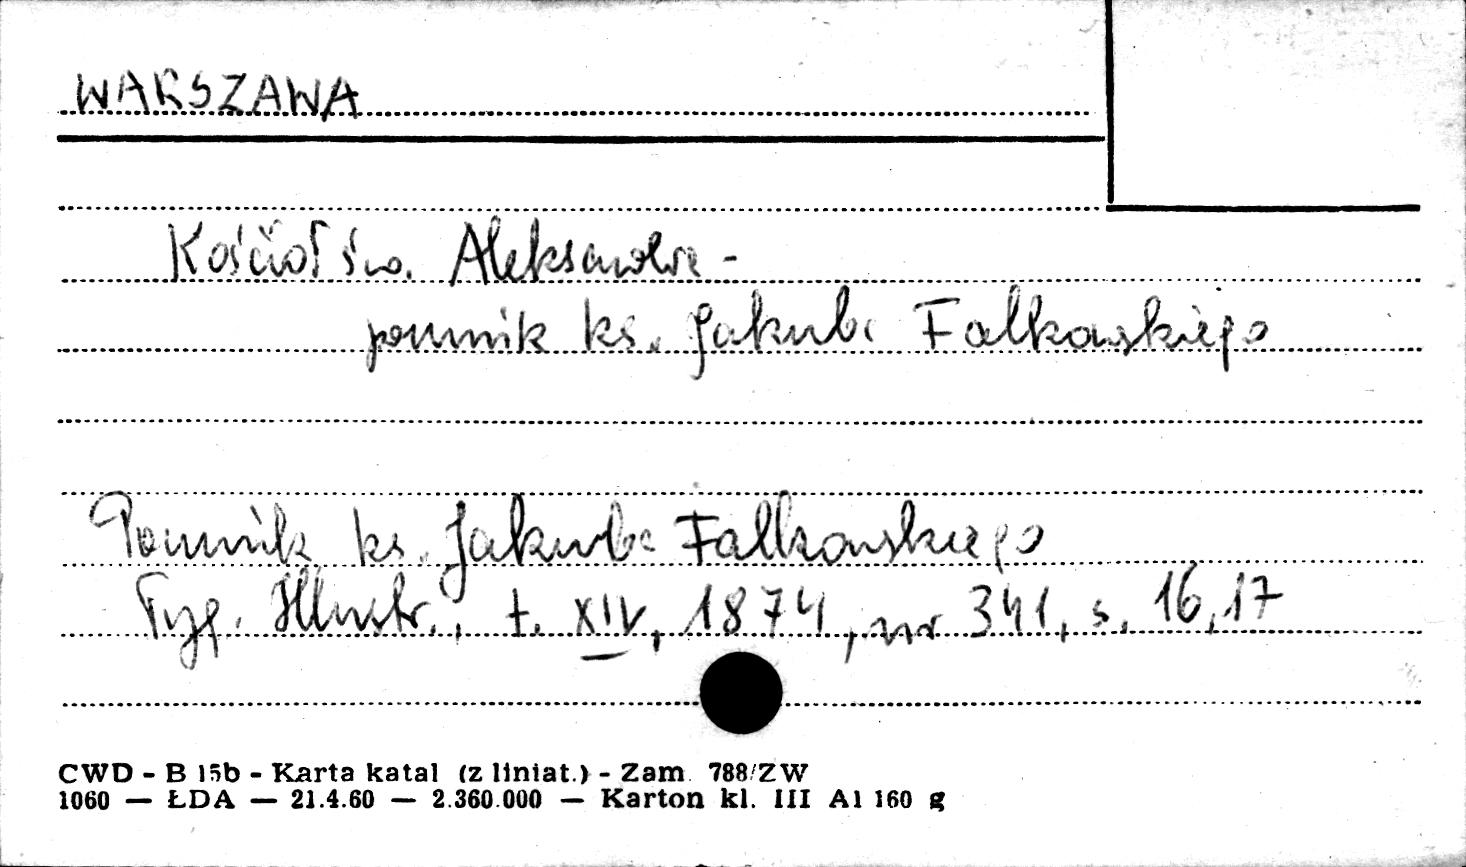 WARSZAWA
Kościół św. Aleksandra -
pomnik ks. Jakuba Falkowskiego
Pomnik ks. Jakuba Falkowskiego
Tyg. Illustr., t. XIV, 1874, nr 341, s. 16,17
CWD - B 15b - Karta katal (z liniat.) - Zam. 788/ZW
1060 — ŁDA — 21.4.60 — 2.360.000 — Karton kl. III A1 160 g